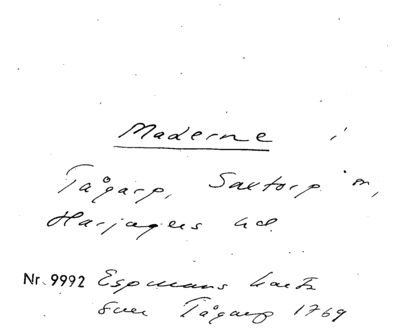 Maderne i
Tågarp, Saxtorp sn,
Harjagers hd.
Nr. 9992 Espmans karta
över Tågarp 1769